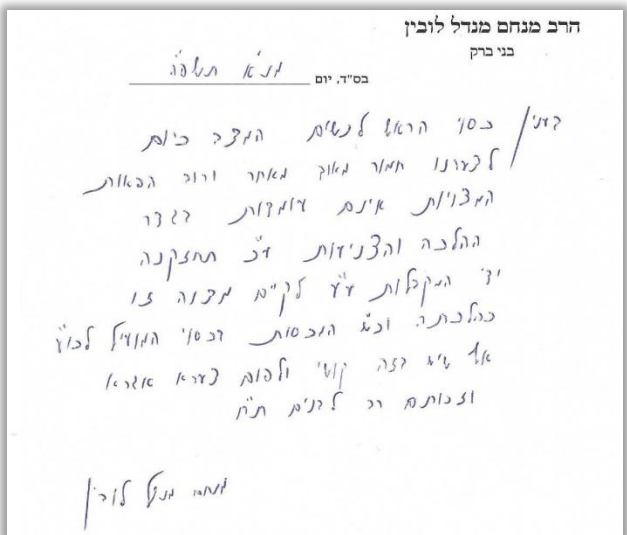 הרב מנחם מנדל לובין
בני ברק
בס"ד, יום מנ"א תשפ"ה
בענין כסוי הראש לנשים המצב כיום
לצערנו חמור מאוד מאחר ורוב הפאות
המצויות אינם עומדות בגדר
ההלכה והצניעות ע"כ תחזקנה
ידי המקבלות ע"ע לקיים מצוה זו
כהלכתה. וכ"ש הנוכסות בכסוי המועיל לכו"ע
אף שיש בזה קושי ולפום צערא אגרא
וזכותם רב לבנים ת"ח
מנחם מנדל לובין